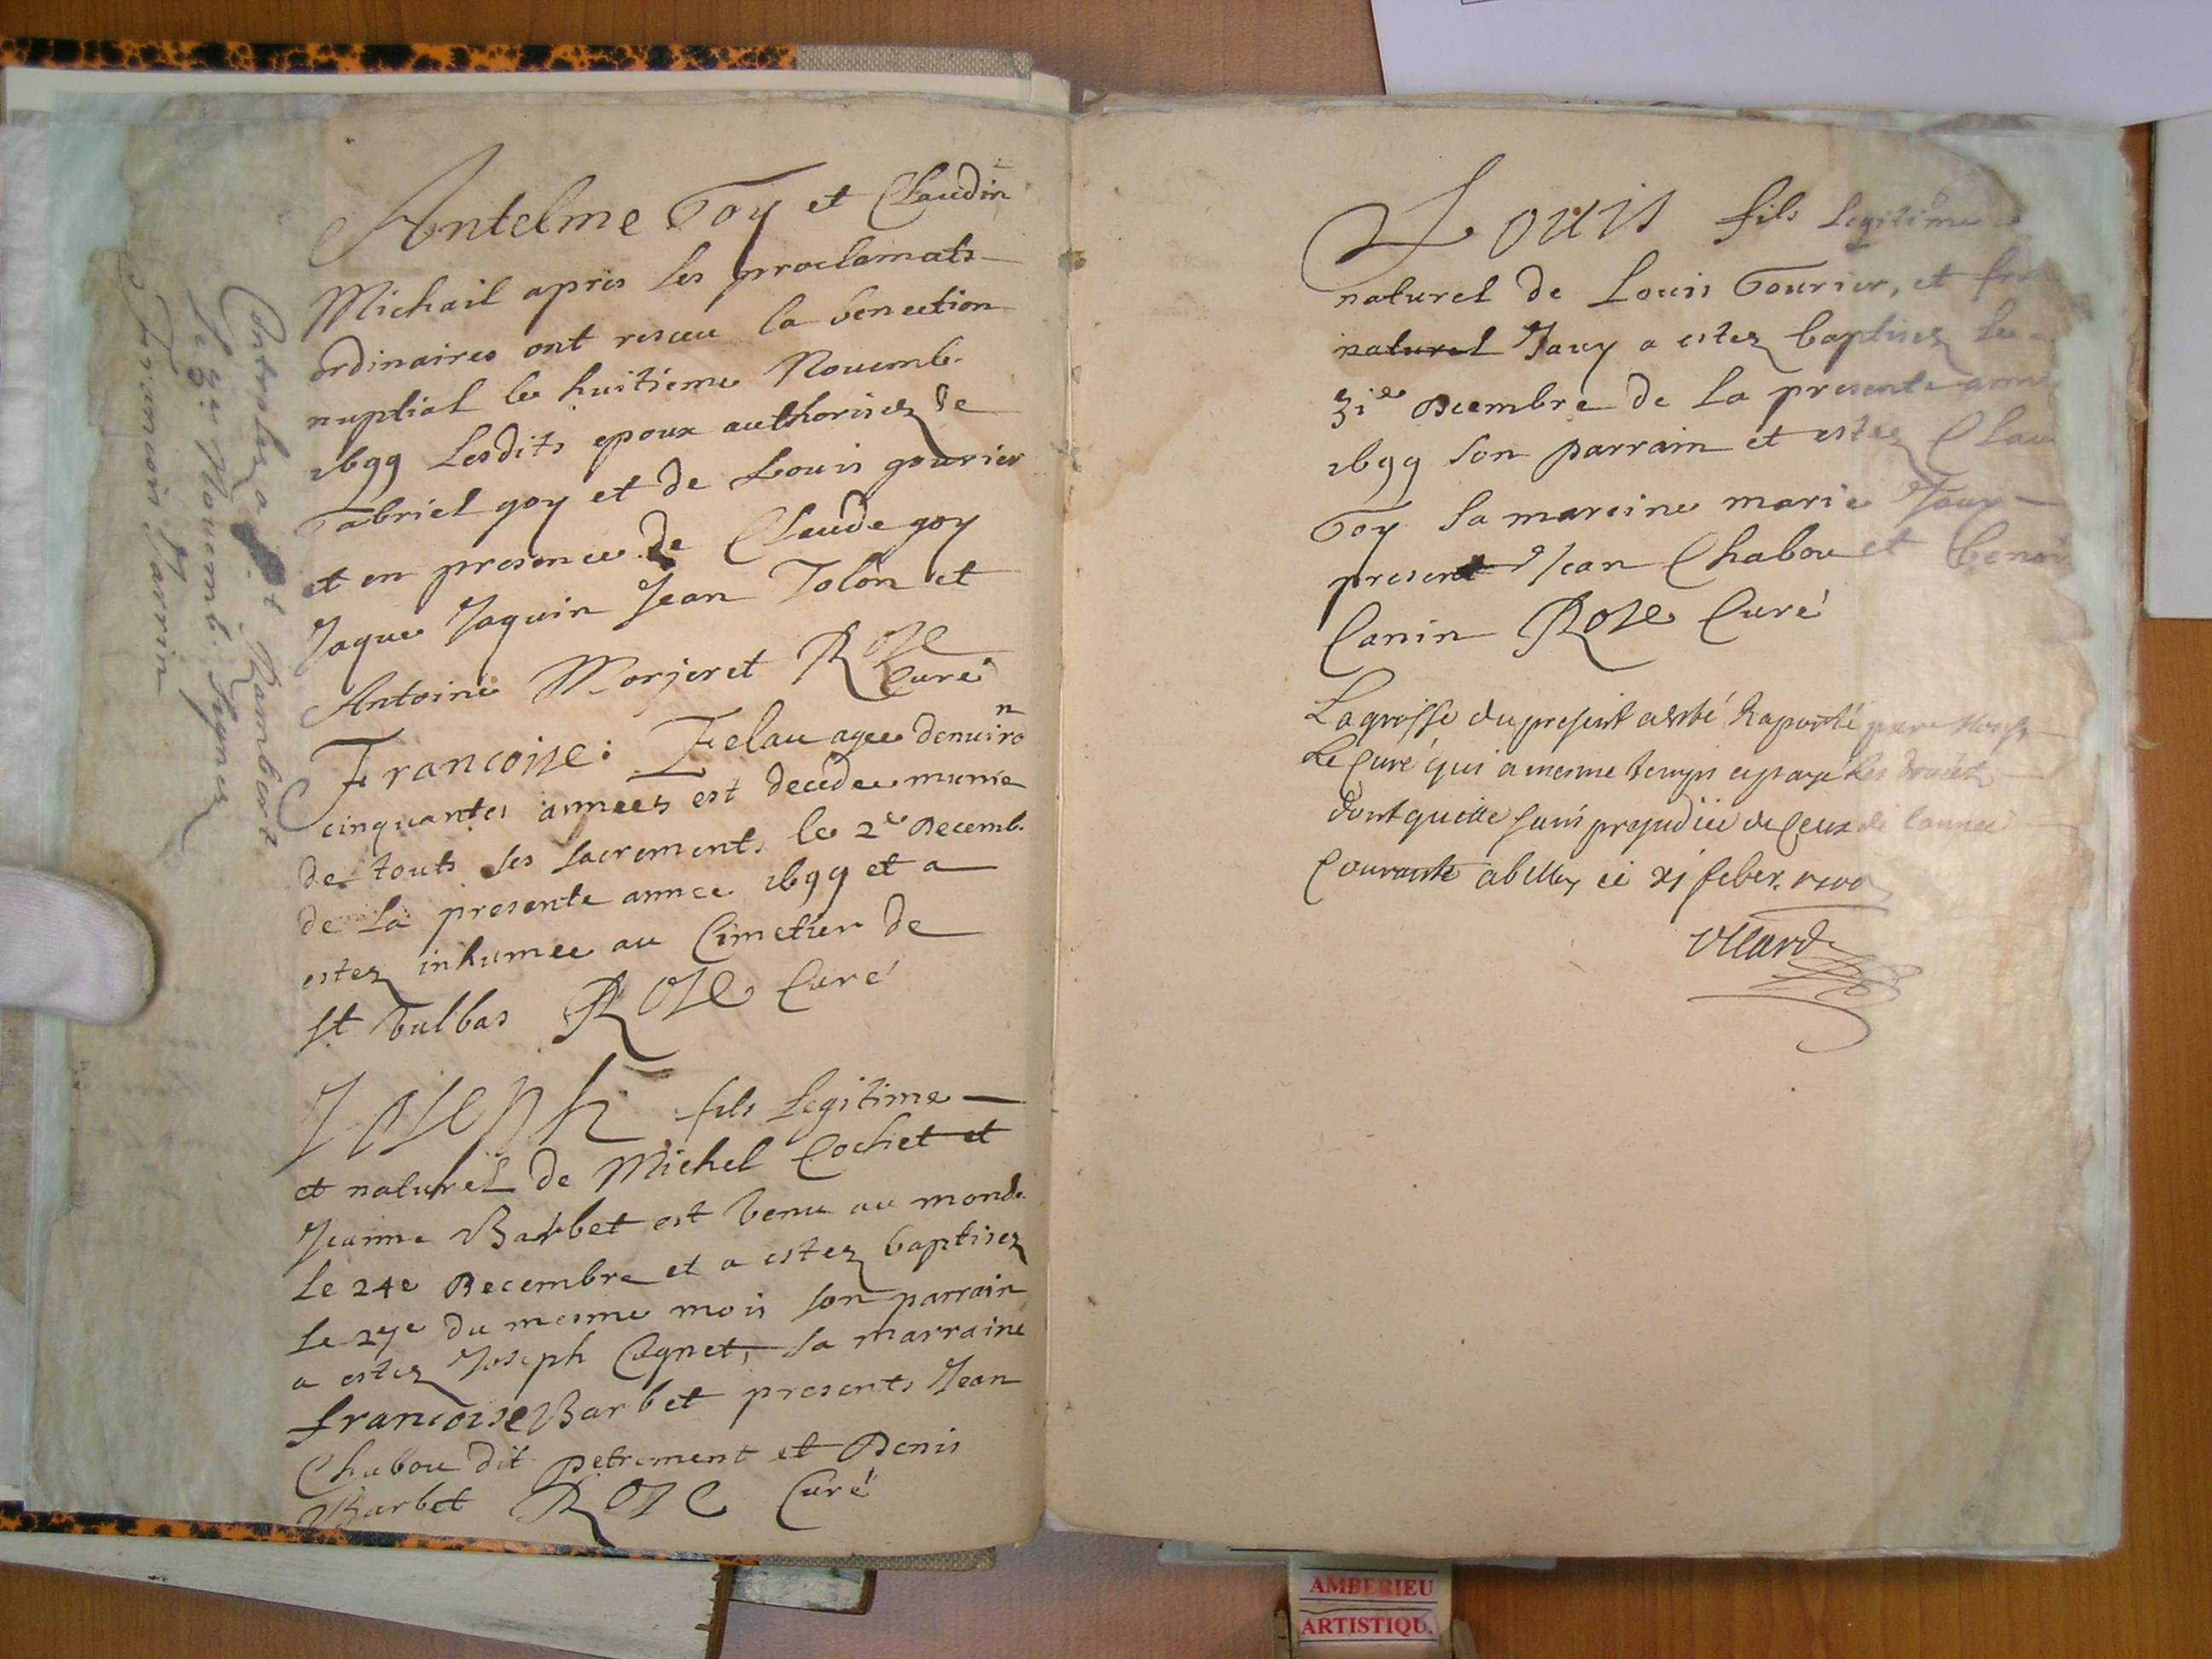 Antelme Goy et Claudine
Michail apres les proclamats
ordinaires ont resceu la benection
nuptial le huitieme Nouemb.
1699 Lesdits epoux authorisez de
Gabriel goy et de Louis gourier
et en presence de Claude goy
Jaque Jaquin Jean Tolon et
Antoine Morjeret Roze
Curé
Controlez a st Rambert
Le 8e Nouemb. Signez
Francois Jarrin
Francoise: Felau agee denuiron
cinquantes annees est decedee munie
de touts ses sacrements le 2e Decemb.
de la presente annee 1699 et a
estez inhumee au Cimetier de
st Vulbas Roze Curé
Joseph fils legitime
et naturel de Michel Cochet et
Jeanne Barbet est venu au monde
le 24e Decembre et a estez baptisez
le 27e du mesme mois son parrain
a estez Joseph Cagnet, sa marraine
francoise Barbet presents Jean
Chabou dit petrement et Denis
Barbet Roze Curé
Louis fils legitime
naturel de Louis Gourier, et
naturel Jauy a estez baptisez le
31e Decembre de la presente
1699 son parrain et estez
Goy sa mareine marie Jauy
present Jean Chabou et
Canin Roze Curé
La grosse du present a esté Raporté par
Le Curé qui a mesme temps a payé les droits
dont quitte sans prejudice de Ceux de lannee
Courante a belley ce xj feber. 1700
AMBERIEU
ARTISTIQU.